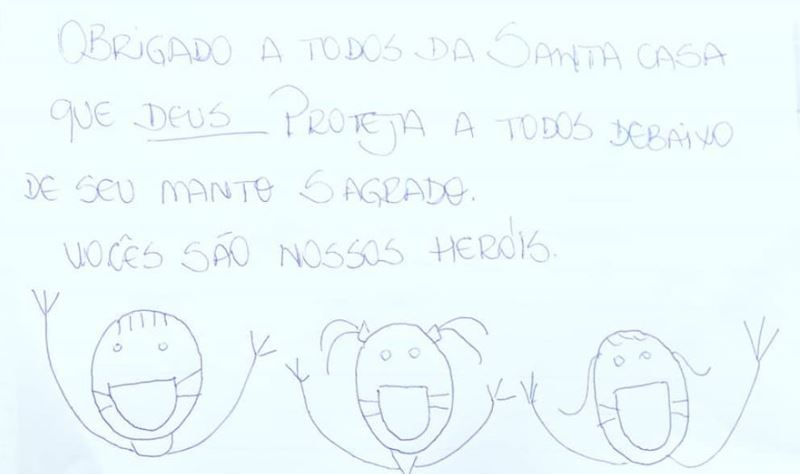 OBRIGADO A TODOS DA SANTA CASA
QUE DEUS PROTEJA A TODOS DEBAIXO
DE SEU MANTO SAGRADO.
VOCÊS SÃO NOSSOS HERÓIS.